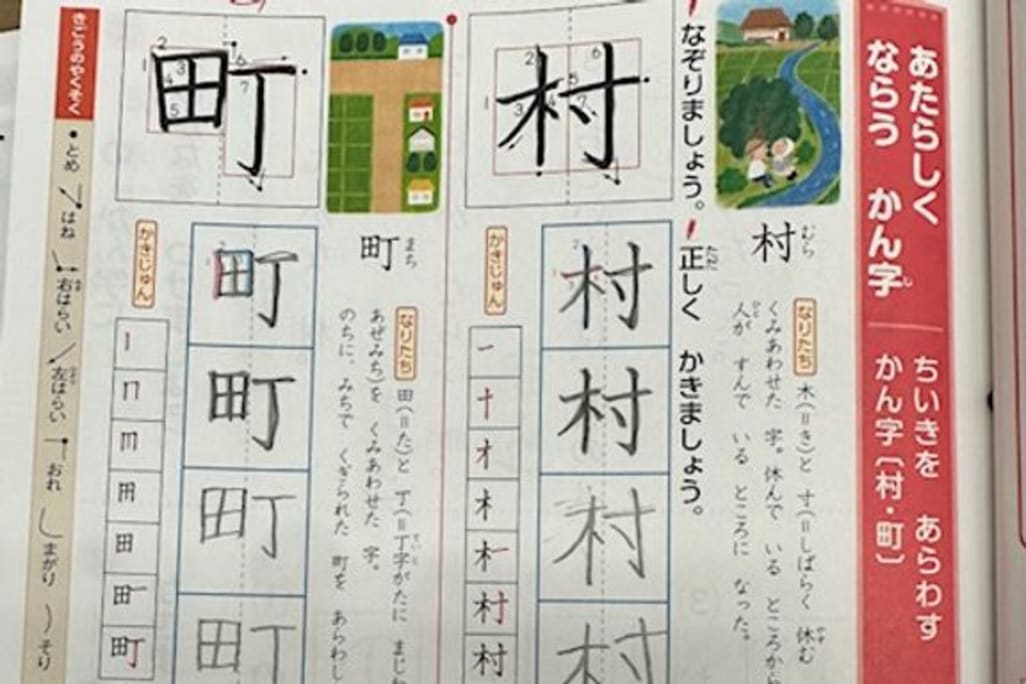 あたらしく
ならう かん字
ちいきを あらわす
かん字〔村・町〕
なぞりましょう。
正しく かきましょう。
村
むら
なりたち
木(=き)と 寸(=しばらく 休む
くみあわせた 字。休んで いる ところから
人が すんで いる ところに なった。
村
かきじゅん
村
村
村
村
町
まち
なりたち
田(=た)と 丁(=丁字がたに まじわ
あぜみち)を くみあわせた 字。
のちに、みちで くぎられた 町を あらわし
町
かきじゅん
町
町
町
町
きごうのやくそく
とめ
はね
右はらい
左はらい
おれ
まがり
そり